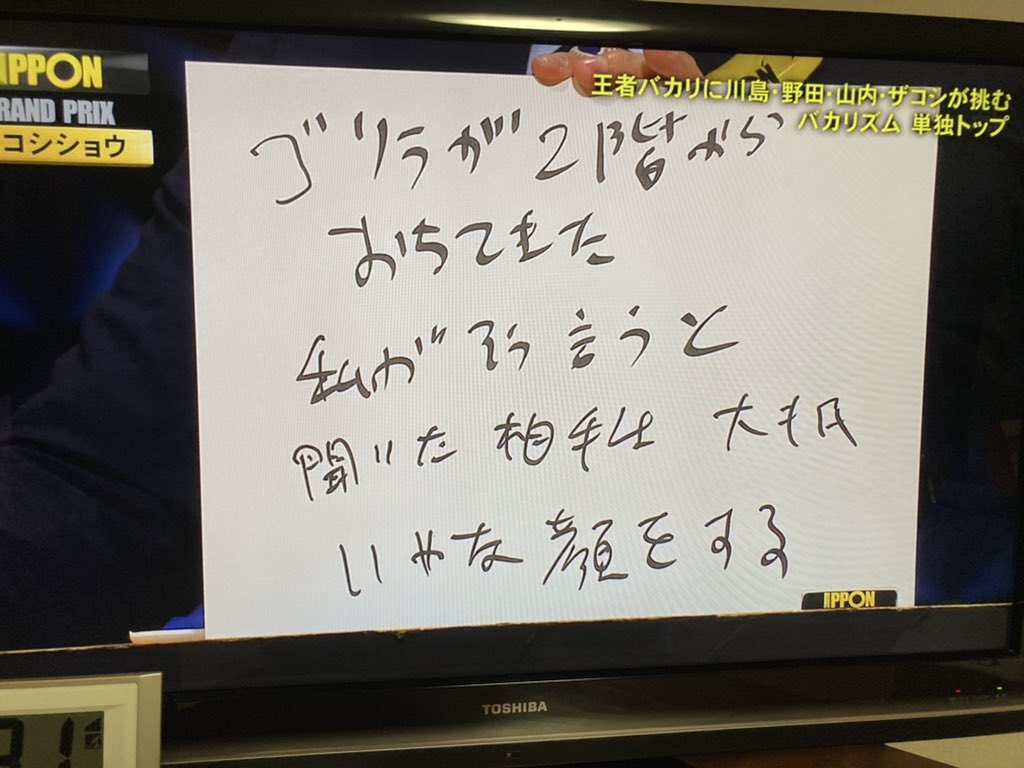 IPPON
GRAND PRIX
コシショウ
王者バカリに川島・野田・山内・ザコシが挑む
バカリズム 単独トップ
ゴリラが2階から
おちてきた
私がそう言うと
聞いた相手は 大抵
いやな顔をする
IPPON
TOSHIBA